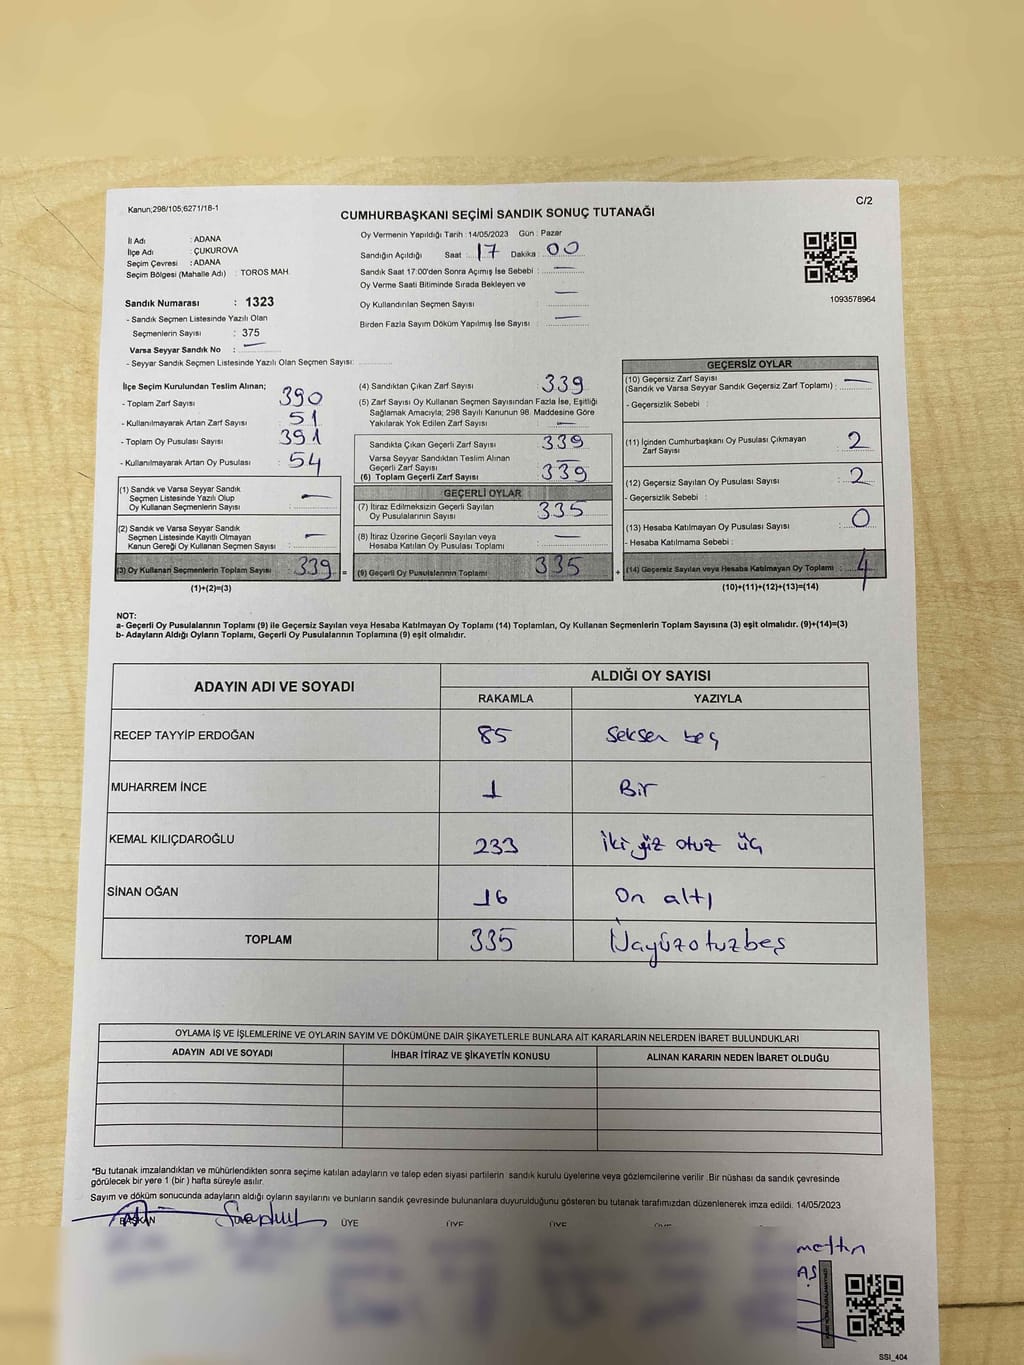 Kanun;298/105;6271/18-1
C/2
CUMHURBAŞKANI SEÇİMİ SANDIK SONUÇ TUTANAĞI
İl Adı : ADANA
İlçe Adı : ÇUKUROVA
Seçim Çevresi : ADANA
Seçim Bölgesi (Mahalle Adı) : TOROS MAH.
Sandık Numarası : 1323
- Sandık Seçmen Listesinde Yazılı Olan
Seçmenlerin Sayısı : 375
Varsa Seyyar Sandık No : —
- Seyyar Sandık Seçmen Listesinde Yazılı Olan Seçmen Sayısı:
Oy Vermenin Yapıldığı Tarih : 14/05/2023 Gün : Pazar
Sandığın Açıldığı Saat : 17 Dakika : 00
Sandık Saat 17:00'den Sonra Açımış İse Sebebi : —
Oy Verme Saati Bitiminde Sırada Bekleyen ve
Oy Kullandırılan Seçmen Sayısı : —
Birden Fazla Sayım Döküm Yapılmış İse Sayısı : —
1093578964
İlçe Seçim Kurulundan Teslim Alınan;
- Toplam Zarf Sayısı : 390
- Kullanılmayarak Artan Zarf Sayısı : 51
- Toplam Oy Pusulası Sayısı : 391
- Kullanılmayarak Artan Oy Pusulası : 54
(1) Sandık ve Varsa Seyyar Sandık
Seçmen Listesinde Yazılı Olup
Oy Kullanan Seçmenlerin Sayısı : —
(2) Sandık ve Varsa Seyyar Sandık
Seçmen Listesinde Kayıtlı Olmayan
Kanun Gereği Oy Kullanan Seçmen Sayısı : —
(3) Oy Kullanan Seçmenlerin Toplam Sayısı : 339 =
(1)+(2)=(3)
(4) Sandıktan Çıkan Zarf Sayısı : 339
(5) Zarf Sayısı Oy Kullanan Seçmen Sayısından Fazla İse, Eşitliği
Sağlamak Amacıyla; 298 Sayılı Kanunun 98. Maddesine Göre
Yakılarak Yok Edilen Zarf Sayısı : —
Sandıkta Çıkan Geçerli Zarf Sayısı : 339
Varsa Seyyar Sandıktan Teslim Alınan
Geçerli Zarf Sayısı : —
(6) Toplam Geçerli Zarf Sayısı : 339
GEÇERLİ OYLAR
(7) İtiraz Edilmeksizin Geçerli Sayılan
Oy Pusulalarının Sayısı : 335
(8) İtiraz Üzerine Geçerli Sayılan veya
Hesaba Katılan Oy Pusulası Toplamı : —
(9) Geçerli Oy Pusulalarının Toplamı : 335 +
GEÇERSİZ OYLAR
(10) Geçersiz Zarf Sayısı
(Sandık ve Varsa Seyyar Sandık Geçersiz Zarf Toplamı) : —
- Geçersizlik Sebebi :
(11) İçinden Cumhurbaşkanı Oy Pusulası Çıkmayan
Zarf Sayısı : 2
(12) Geçersiz Sayılan Oy Pusulası Sayısı : 2
- Geçersizlik Sebebi :
(13) Hesaba Katılmayan Oy Pusulası Sayısı : 0
- Hesaba Katılmama Sebebi :
(14) Geçersiz Sayılan veya Hesaba Katılmayan Oy Toplamı : 4
(10)+(11)+(12)+(13)=(14)
NOT:
a- Geçerli Oy Pusulalarının Toplamı (9) ile Geçersiz Sayılan veya Hesaba Katılmayan Oy Toplamı (14) Toplamları, Oy Kullanan Seçmenlerin Toplam Sayısına (3) eşit olmalıdır. (9)+(14)=(3)
b- Adayların Aldığı Oyların Toplamı, Geçerli Oy Pusulalarının Toplamına (9) eşit olmalıdır.
ADAYIN ADI VE SOYADI ALDIĞI OY SAYISI
RAKAMLA YAZIYLA
RECEP TAYYİP ERDOĞAN 85 Seksen beş
MUHARREM İNCE 1 Bir
KEMAL KILIÇDAROĞLU 233 İki yüz otuz üç
SİNAN OĞAN 16 On altı
TOPLAM 335 Üçyüzotuzbeş
OYLAMA İŞ VE İŞLEMLERİNE VE OYLARIN SAYIM VE DÖKÜMÜNE DAİR ŞİKAYETLERLE BUNLARA AİT KARARLARIN NELERDEN İBARET BULUNDUKLARI
ADAYIN ADI VE SOYADI İHBAR İTİRAZ VE ŞİKAYETİN KONUSU ALINAN KARARIN NEDEN İBARET OLDUĞU
*Bu tutanak imzalandıktan ve mühürlendikten sonra seçime katılan adayların ve talep eden siyasi partilerin sandık kurulu üyelerine veya gözlemcilerine verilir .Bir nüshası da sandık çevresinde
görülecek bir yere 1 (bir ) hafta süreyle asılır.
Sayım ve döküm sonucunda adayların aldığı oyların sayılarını ve bunların sandık çevresinde bulunanlara duyurulduğunu gösteren bu tutanak tarafımızdan düzenlenerek imza edildi. 14/05/2023
BAŞKAN ÜYE ÜYE ÜYE ÜYE
mettin
AŞ
SSI_404